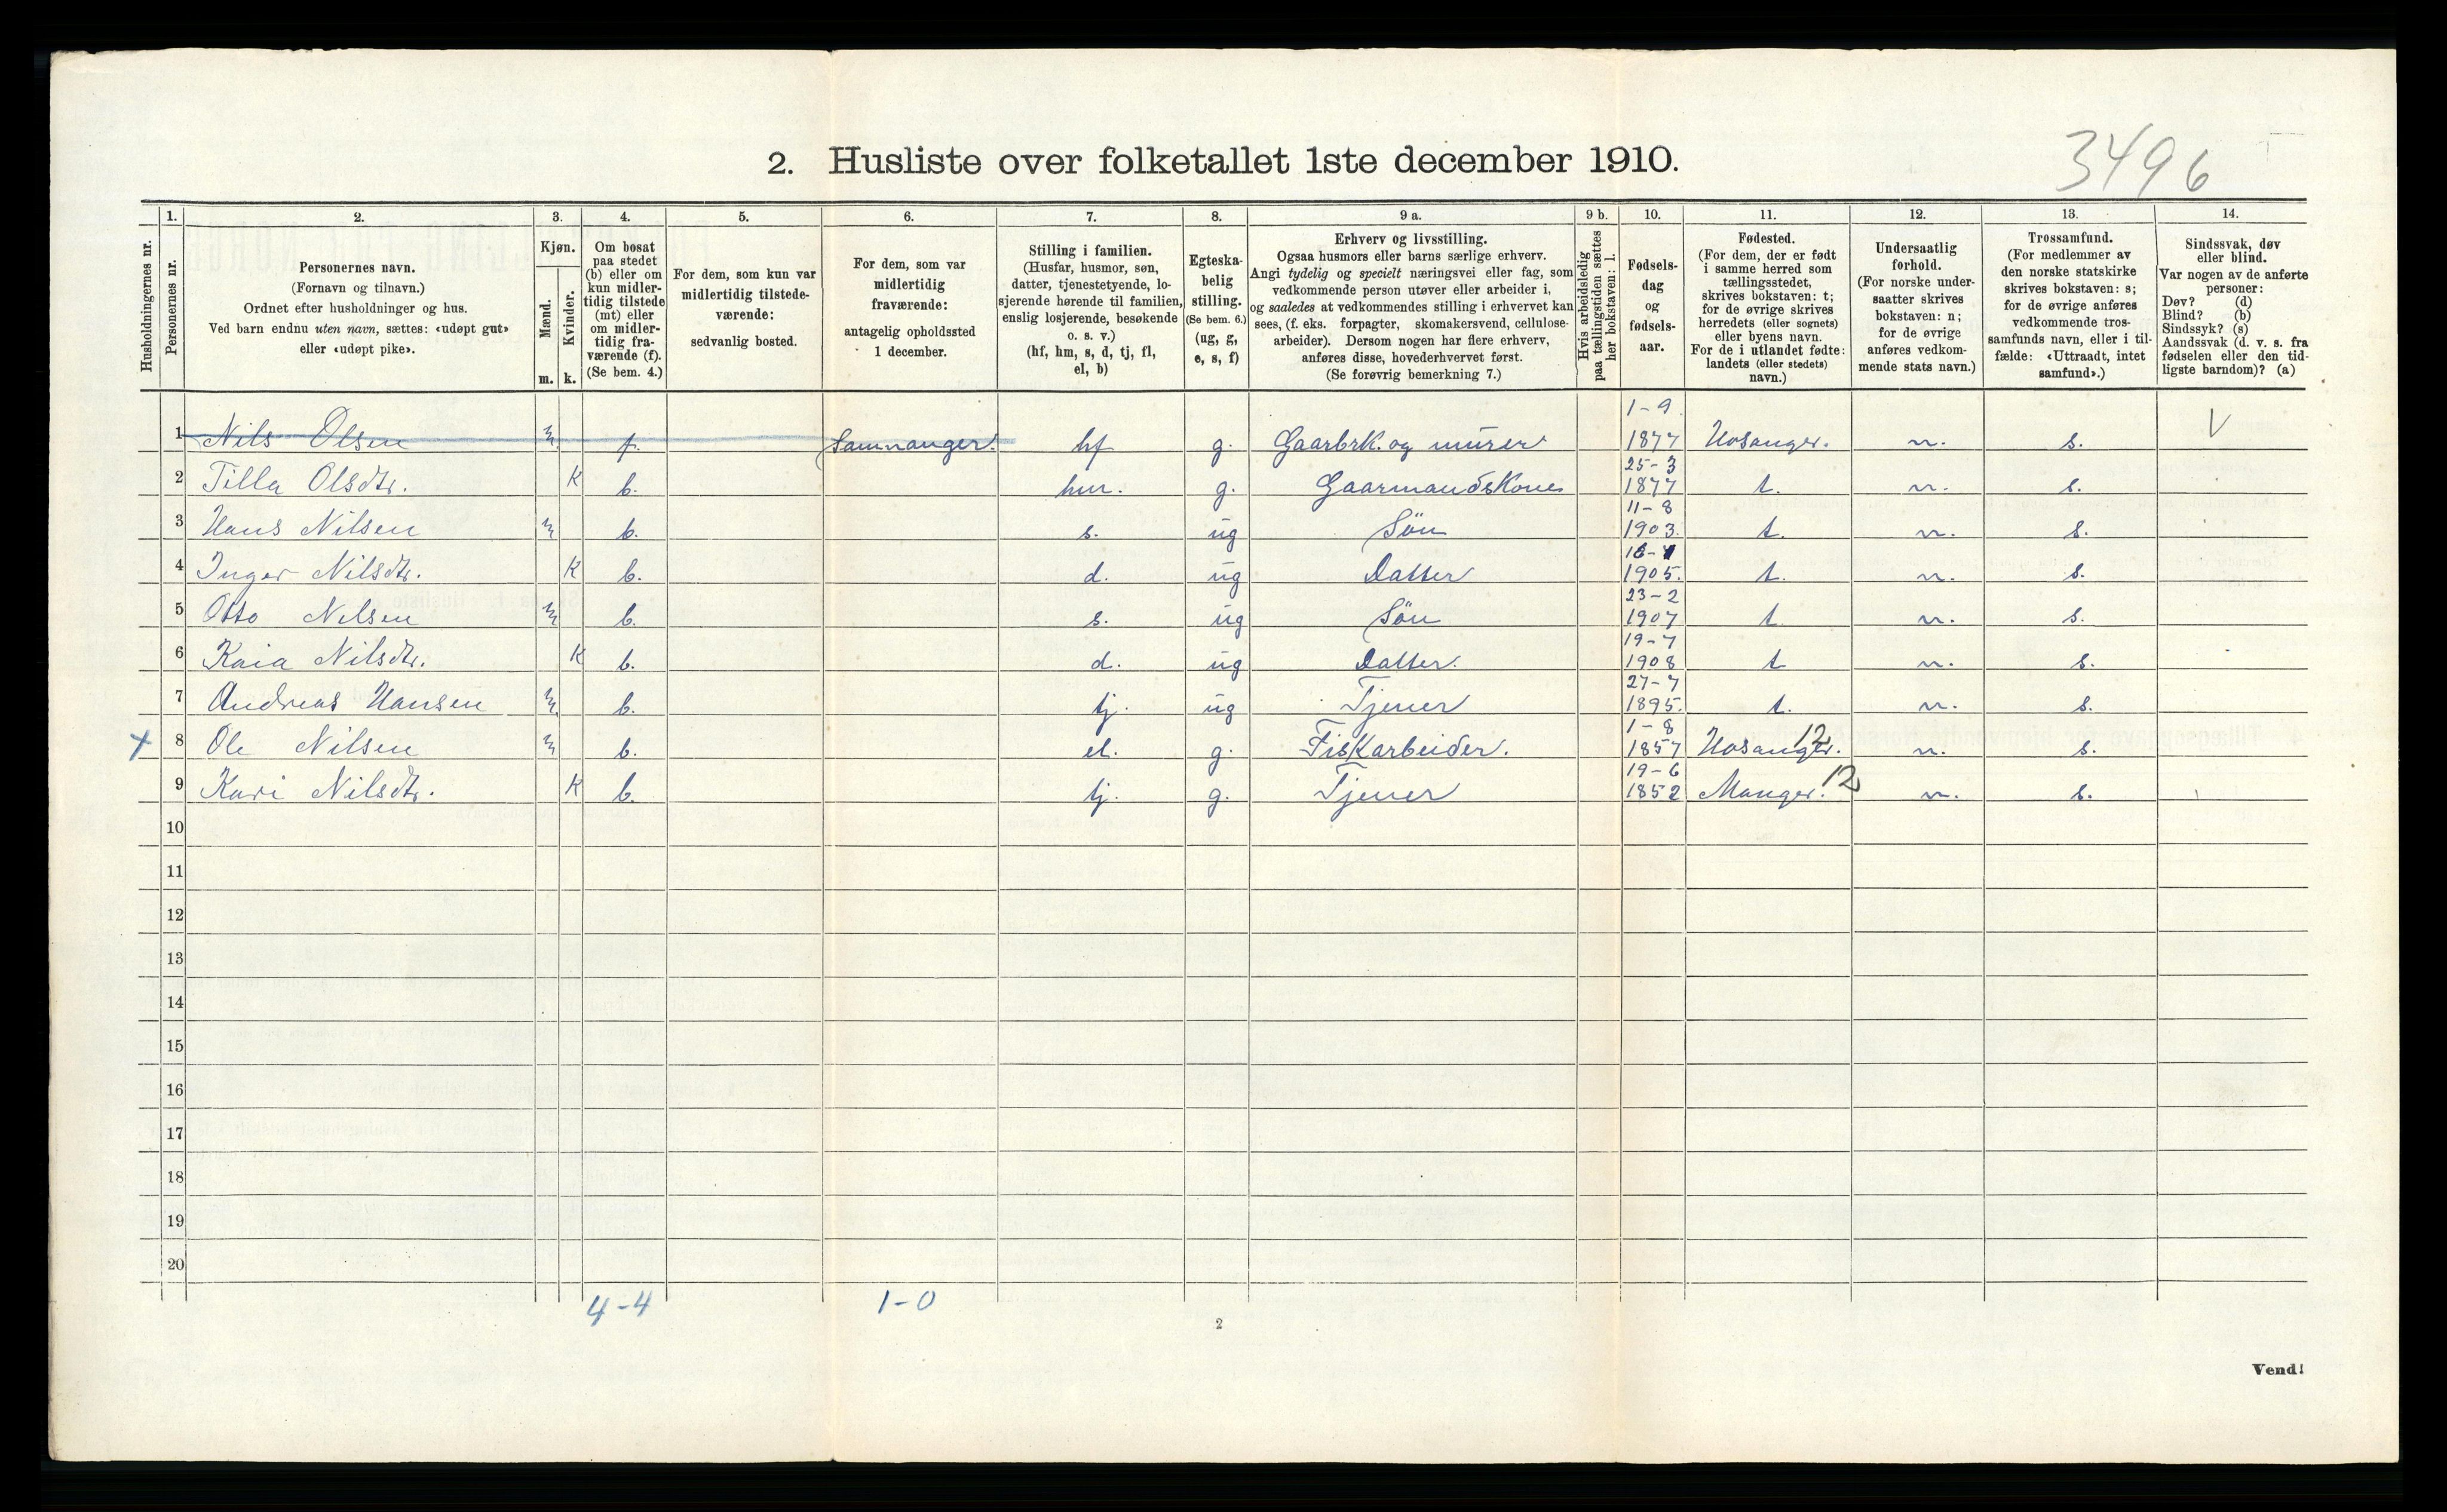 3496
2. Husliste over folketallet 1ste december 1910.
Husholdningernes nr.
1. Personernes nr.
2. Personernes navn. (Fornavn og tilnavn.) Ordnet efter husholdninger og hus. Ved barn endnu uten navn, sættes: «udøpt gut» eller «udøpt pike».
3. Kjøn. Mænd. m. Kvinder. k.
4. Om bosat paa stedet (b) eller om kun midler-tidig tilstede (mt) eller om midler-tidig fra-værende (f). (Se bem. 4.)
5. For dem, som kun var midlertidig tilstede-værende: sedvanlig bosted.
6. For dem, som var midlertidig fraværende: antagelig opholdssted 1 december.
7. Stilling i familien. (Husfar, husmor, søn, datter, tjenestetyende, lo-sjerende hørende til familien, enslig losjerende, besøkende o. s. v.) (hf, hm, s, d, tj, fl, el, b)
8. Egteska-belig stilling. (Se bem. 6.) (ug, g, e, s, f)
9 a. Erhverv og livsstilling. Ogsaa husmors eller barns særlige erhverv. Angi tydelig og specielt næringsvei eller fag, som vedkommende person utøver eller arbeider i, og saaledes at vedkommendes stilling i erhvervet kan sees, (f. eks. forpagter, skomakersvend, cellulose-arbeider). Dersom nogen har flere erhverv, anføres disse, hovederhvervet først. (Se forøvrig bemerkning 7.)
9 b. Hvis arbeidsledig paa tællingstiden sættes her bokstaven: l.
10. Fødsels-dag og fødsels-aar.
11. Fødested. (For dem, der er født i samme herred som tællingsstedet, skrives bokstaven: t; for de øvrige skrives herredets (eller sognets) eller byens navn. For de i utlandet fødte: landets (eller stedets) navn.)
12. Undersaatlig forhold. (For norske under-saatter skrives bokstaven: n; for de øvrige anføres vedkom-mende stats navn.)
13. Trossamfund. (For medlemmer av den norske statskirke skrives bokstaven: s; for de øvrige anføres vedkommende tros-samfunds navn, eller i til-fælde: «Uttraadt, intet samfund».)
14. Sindssvak, døv eller blind. Var nogen av de anførte personer: Døv? (d) Blind? (b) Sindssyk? (s) Aandssvak (d. v. s. fra fødselen eller den tid-ligste barndom)? (a)
1 Nils Olsen m f. Samnanger. hf g. Gaarbrk. og murer 1-9 1877 Hosanger. n. s. V
2 Tilla Olsdtr. K b. hm. g. Gaarmandskone 25-3 1877 t. n. s.
3 Hans Nilsen m b. s. ug Søn 11-8 1903. t. n. s.
4 Inger Nilsdtr. K b. d. ug Datter 1905. t. n. s.
5 Otto Nilsen m b. s. ug Søn 23-2 1907 t n. s.
6 Kaia Nilsdtr. K b. d. ug Datter. 19-7 1908 t n. s.
7 Andreas Hansen m b. tj. ug Tjener 27-7 1895. t. n. s.
x 8 Ole Nilsen m b. el. g. Fiskarbeider. 1-8 1857 Hosanger. 12 n. s.
9 Kari Nilsdtr. K b. tj. g. Tjener 19-6 1852 Manger. 12 n. s.
10
11
12
13
14
15
16
17
18
19
20
4-4 1-0
2
Vend!